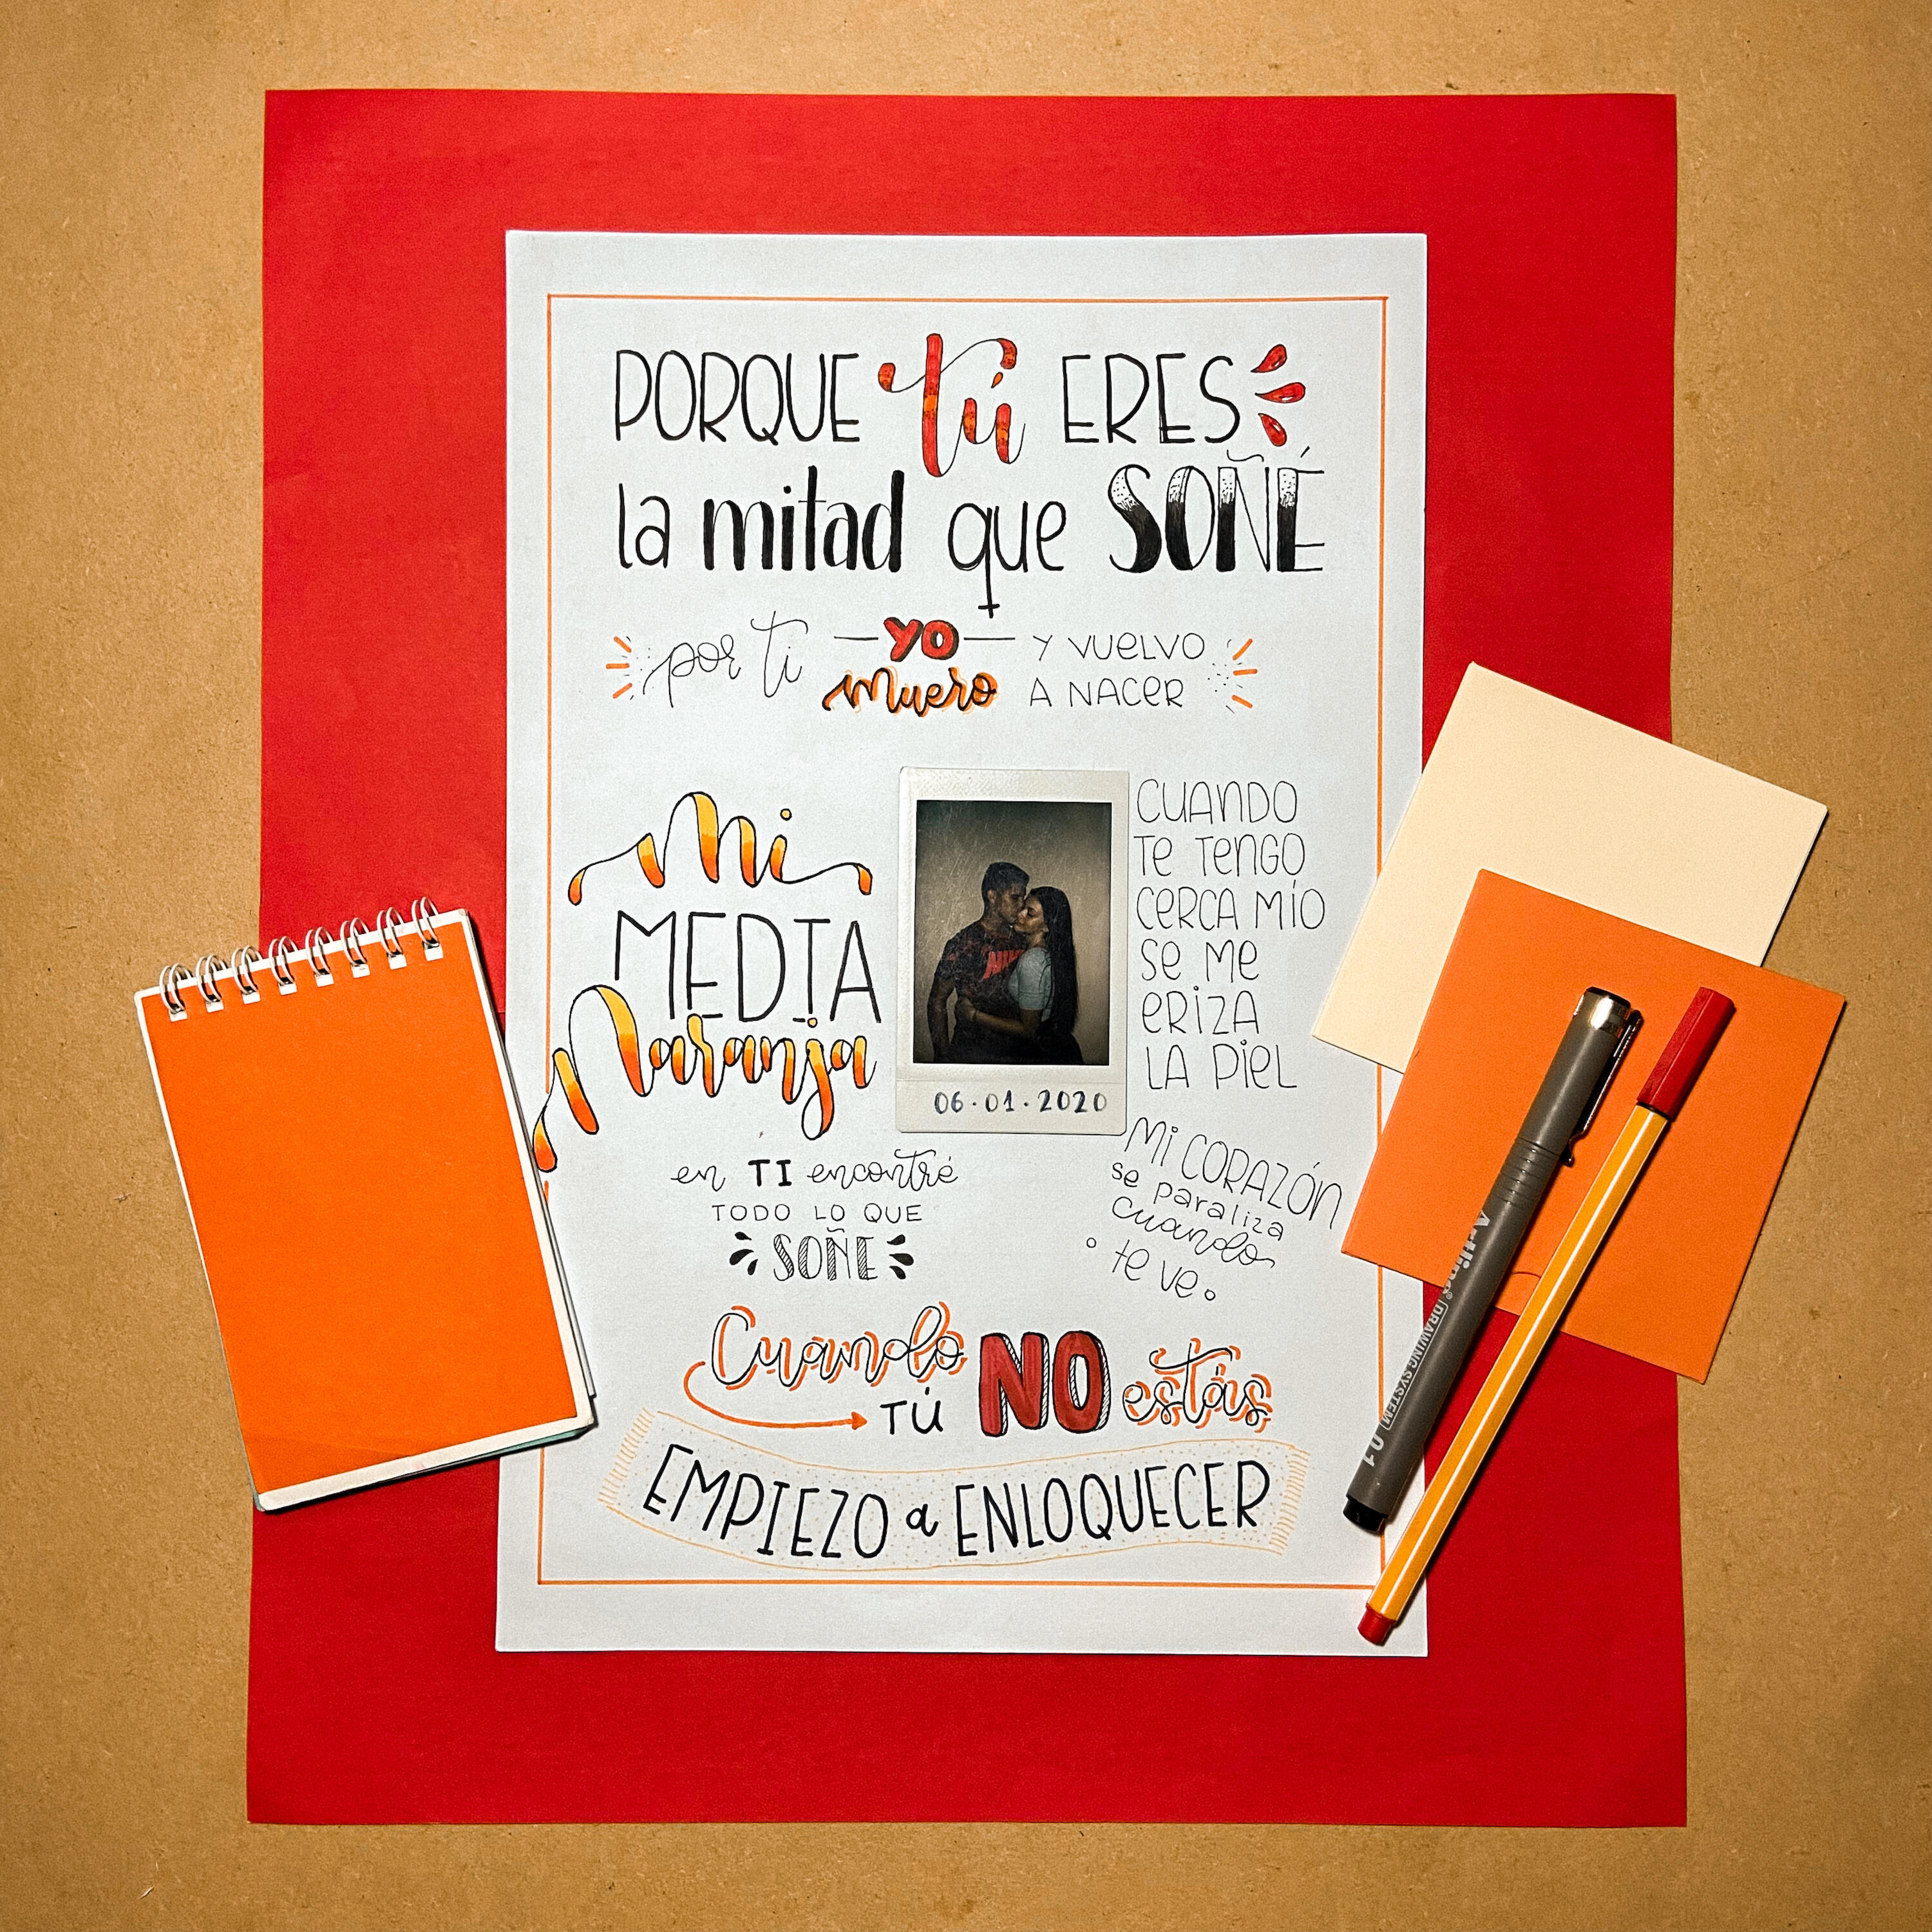 PORQUE tú ERES
la mitad que SOÑÉ
por ti YO muero Y VUELVO A NACER
Mi
MEDIA
Naranja
CUANDO
TE TENGO
CERCA MÍO
SE ME
ERIZA
LA PIEL
06·01·2020
en TI encontré
TODO LO QUE
SOÑE
MI CORAZÓN
se paraliza
cuando
te ve
Cuando
TÚ NO estás
EMPIEZO a ENLOQUECER
Artline® DRAWING SYSTEM 0.1